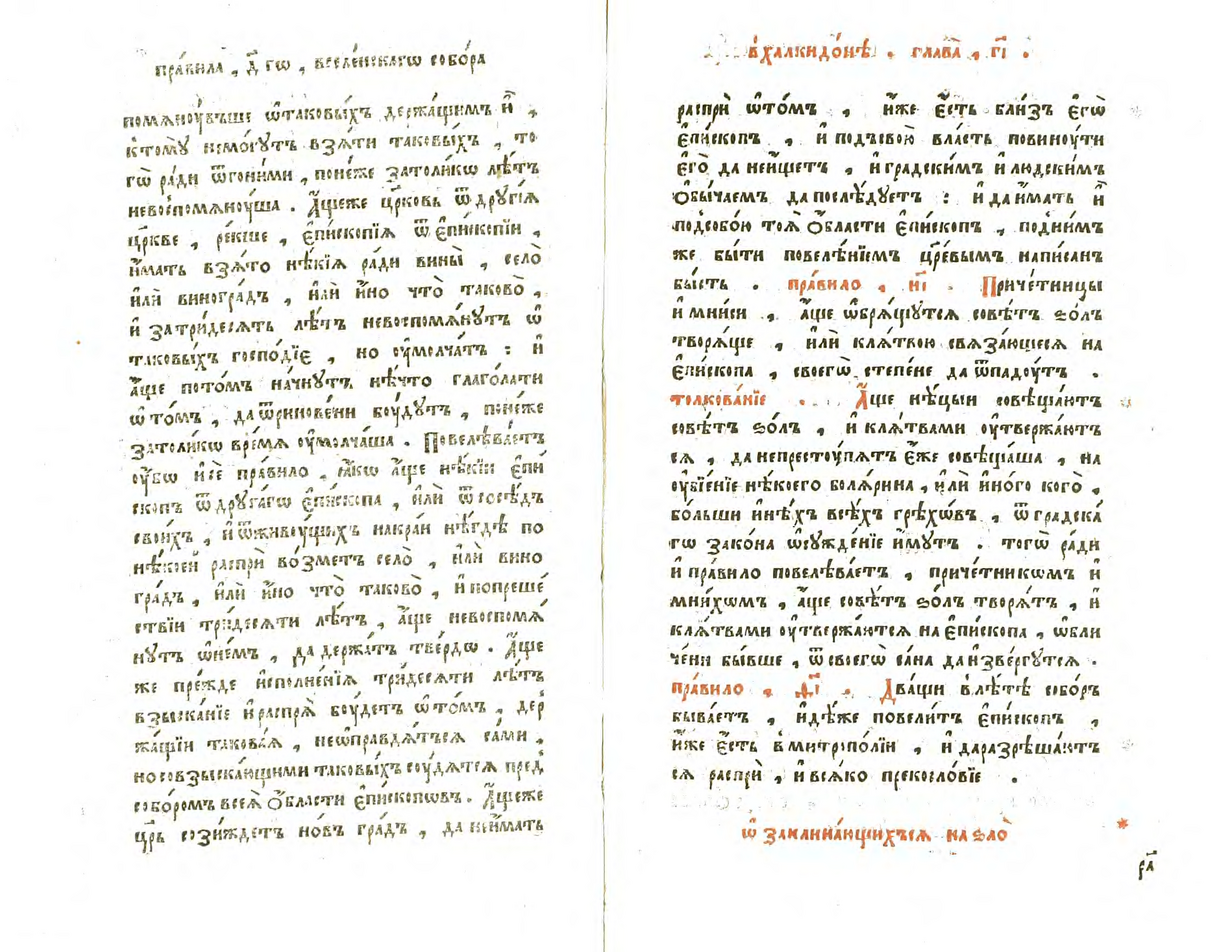 пра́вила , д҃ гѡ , вселе́нскагѡ собо́ра
помѧноу́въше ѿтаковы́хъ держа́щимъ и҆̀ ,
ктомꙋ̀ немо́гꙋтъ взѧ́ти таковы́хъ , то
гѡ̀ ра́ди ѿгони́ми , поне́же затоли́кѡ лѣ́тъ
невоспомѧноу́ша . А҆́щеже цр҃ковь ѿ дрꙋгі́ѧ
цр҃кве , ре́кше , є҆пископі́ѧ ѿ є҆пископі́и ,
и҆́мать взѧ́то нѣ́кіѧ ра́ди вины̀ , село̀
и҆лѝ виногра́дъ , и҆лѝ и҆́но что̀ таково̀ ,
и҆ затри́десѧть лѣ́тъ невоспомѧ́нꙋтъ ѡ҆
таковы́хъ госпо́дїе , но оу҆молча́тъ : и҆
а҆́ще пото́мъ на́чнꙋтъ нѣ́что глаго́лати
ѡ҆ то́мъ , да ѿринове́ни боу́дꙋтъ , поне́же
затоли́кѡ вре́мѧ оу҆молча́ша . Повелѣва́етъ
оу҆́бѡ и҆ сѐ пра́вило , ꙗ҆́кѡ а҆́ще нѣ́кїи є҆пи
скопъ ѿ дрꙋга́гѡ є҆пи́скопа , и҆лѝ ѿ сосѣ́дъ
свои́хъ , и҆ ѿживоу́щыхъ накра́и нѣ́гдѣ по
нѣ́коей распрѝ во́зметъ село̀ , и҆лѝ вино
гра́дъ , и҆лѝ и҆́но что̀ таково̀ , и҆ попреше́
ствїи три́десѧти лѣ́тъ , а҆́ще невоспомѧ́
нꙋтъ ѡ҆не́мъ , да держа́тъ тве́рдѡ . А҆́ще
же пре́жде и҆сполне́нїѧ три́десѧти лѣ́тъ
взыска́нїе и҆ распрѧ̀ боу́детъ ѡ҆ то́мъ , дер
жа́щїи такова́ѧ , неѡ҆правдѧ́тъсѧ са́ми ,
но совзыска́ющими таковы́хъ соу́дѧтсѧ пред̾
собо́ромъ всеѧ̀ ѻ҆́бласти є҆пи́скопѡвъ . А҆́щеже
цр҃ь сози́ждетъ но́въ гра́дъ , да неи҆́мать
в халкидо́нѣ , глава̀ , г҃і .
распрѝ ѡ҆то́мъ , и҆́же є҆́сть бли́зъ є҆гѡ̀
є҆пи́скопъ , и҆ подъсвою̀ вла́сть повиноу́ти
є҆го̀ да неи҆́щетъ , и҆ гра́дскимъ и҆ лю́дскимъ
ѻ҆бы́чаемъ да послѣ́дꙋетъ : и҆ да и҆́мать и҆̀
подсобо́ю тоѧ̀ ѻ҆́бласти є҆пи́скопъ , подни́мъ
же бы́ти повелѣ́нїемъ цр҃е́вымъ напи́сан
бы́сть . пра́вило , и҃і . Приче́тницы
и҆ мни́си , а҆́ще ѡ҆брѧ́щꙋтсѧ совѣ́тъ ѕо́лъ
творѧ́ще , и҆лѝ клѧ́твою свѧза́ющесѧ на
є҆пи́скопа , своегѡ̀ степе́не да ѿпадоу́тъ .
толкова́нїе . А҆́ще нѣ́цыи совѣща́ютъ
совѣ́тъ ѕо́лъ , и҆ клѧ́твами оу҆твержа́ют
сѧ , да непрестоу́пѧтъ є҆́же совѣща́ша , на
оу҆бїе́нїе нѣ́коего болѧ́рина , и҆лѝ и҆но́го кого̀ ,
бо́льши и҆нѣ́хъ всѣ́хъ грѣхѡ́въ , ѿ гра́дска
гѡ зако́на ѡ҆сꙋжде́нїе и҆́мꙋтъ . тогѡ̀ ра́ди
и҆ пра́вило повелѣва́етъ , приче́тникѡмъ и҆
мни́хѡмъ , а҆́ще совѣ́тъ ѕо́лъ творѧ́тъ , и҆
клѧ́твами оу҆твержа́ютсѧ на є҆пи́скопа , ѡ҆бли
че́ни бы́вше , ѿ своегѡ̀ са́на да и҆зве́ргꙋтсѧ .
пра́вило , ѳ҃і . Два́щи в лѣ́тѣ собо́ръ
быва́етъ , и҆дѣ́же повели́тъ є҆пи́скопъ ,
и҆́же є҆́сть в митропо́лїи , и҆ даразрѣша́ют
сѧ распрѝ , и҆ всѧ́ко прекосло́вїе .
ѡ҆ заклина́ющихъсѧ на ѕло̀
*
р҃а